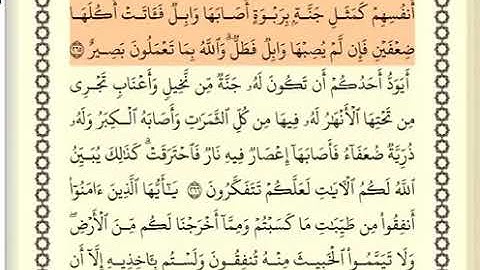 أَنفُسِهِمْ كَمَثَلِ جَنَّةٍۭ بِرَبْوَةٍ أَصَابَهَا وَابِلٌ فَـَٔاتَتْ أُكُلَهَا
ضِعْفَيْنِ فَإِن لَّمْ يُصِبْهَا وَابِلٌ فَطَلٌّ ۗ وَٱللَّهُ بِمَا تَعْمَلُونَ بَصِيرٌ ٢٦٥
أَيَوَدُّ أَحَدُكُمْ أَن تَكُونَ لَهُۥ جَنَّةٌ مِّن نَّخِيلٍ وَأَعْنَابٍ تَجْرِى
مِن تَحْتِهَا ٱلْأَنْهَٰرُ لَهُۥ فِيهَا مِن كُلِّ ٱلثَّمَرَٰتِ وَأَصَابَهُ ٱلْكِبَرُ وَلَهُۥ
ذُرِّيَّةٌ ضُعَفَآءُ فَأَصَابَهَآ إِعْصَارٌ فِيهِ نَارٌ فَٱحْتَرَقَتْ ۗ كَذَٰلِكَ يُبَيِّنُ
ٱللَّهُ لَكُمُ ٱلْـَٔايَٰتِ لَعَلَّكُمْ تَتَفَكَّرُونَ ٢٦٦ يَٰٓأَيُّهَا ٱلَّذِينَ ءَامَنُوٓا۟
أَنفِقُوا۟ مِن طَيِّبَٰتِ مَا كَسَبْتُمْ وَمِمَّآ أَخْرَجْنَا لَكُم مِّنَ ٱلْأَرْضِ ۖ
وَلَا تَيَمَّمُوا۟ ٱلْخَبِيثَ مِنْهُ تُنفِقُونَ وَلَسْتُم بِـَٔاخِذِيهِ إِلَّآ أَن